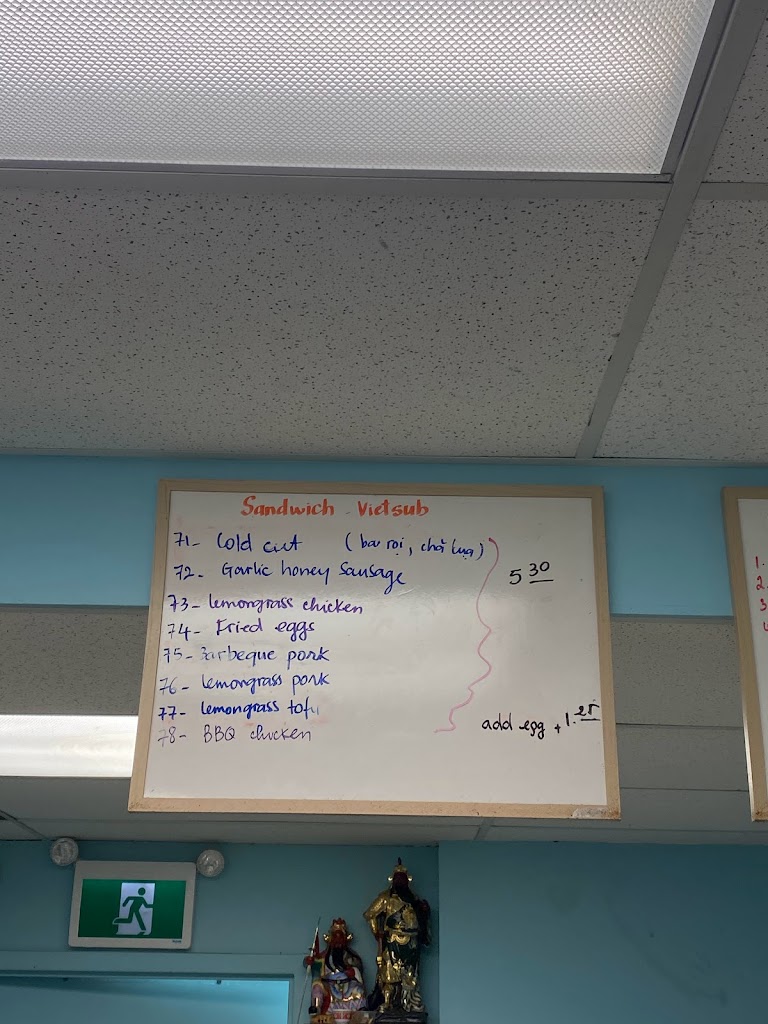 Sandwich Vietsub
71- Cold cut (ba rọi, chả lụa)
72- Garlic honey Sausage
73- lemongrass chicken
74- Fried eggs
75- Barbeque pork
76- lemongrass pork
77- lemongrass tofu
78- BBQ chicken
5 30
add egg + 1.25
1.
2.
3